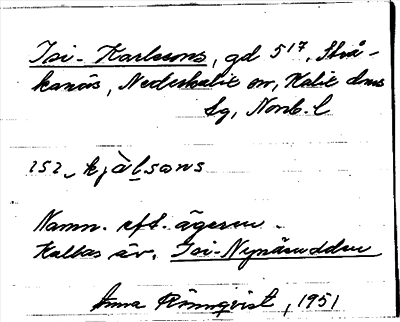 Isi-Karlssons, gd 5¹⁷, Strå-
kanäs, Nederkalix sn, Kalix dms
tg, Norrb. l
ɪsɪ_ kjàlsɒns
Namn. eft. ägaren.
Kallas äv. Isi-Nynäsudden
Anna Rönnqvist, 1951